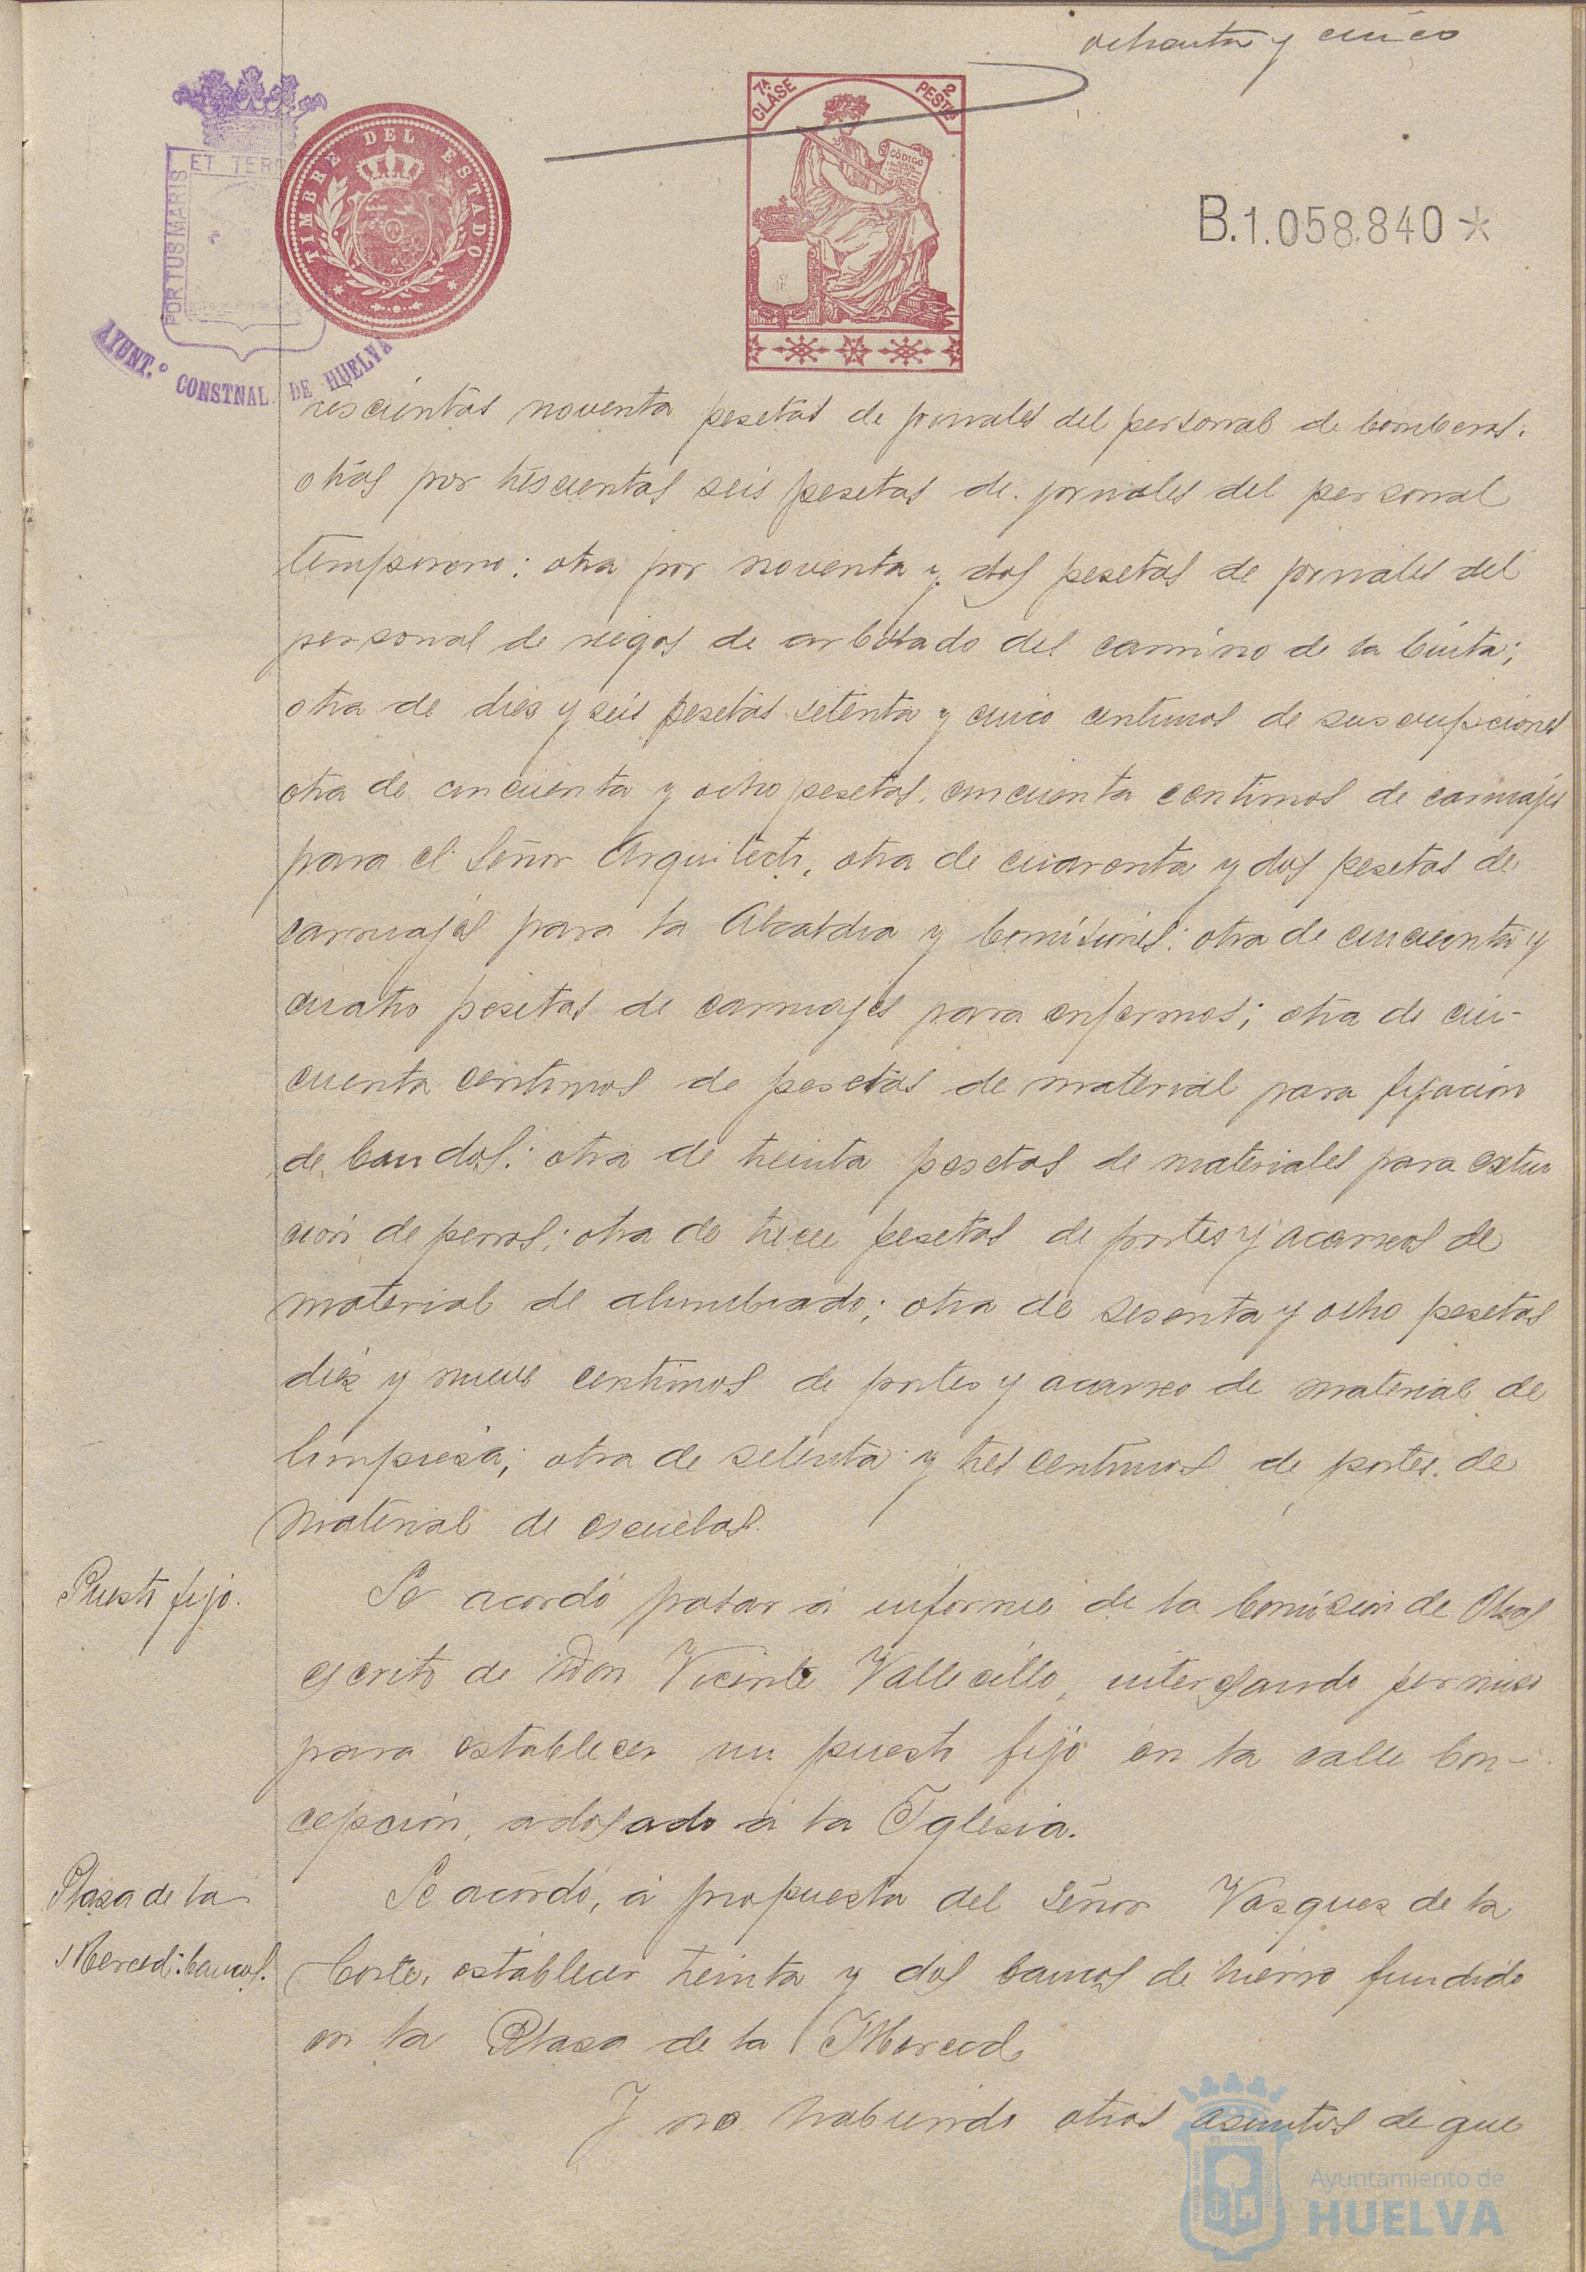 ochenta y cinco
7ª CLASE
2 PESTS
CÓDIGO
TIMBRE DEL ESTADO
ET TERR
PORTUS MARIS
AYUNT.º CONSTNAL. DE HUELVA
B.1.058.840*
rescientas noventa pesetas de jornales del personal de bomberos.
otras por trescientas seis pesetas de jornales del personal
temporero; otra por noventa y dos pesetas de jornales del
personal de riegos de arbolado del camino de la Cinta;
otra de diez y seis pesetas setenta y cinco centimos de suscripciones
otra de cincuenta y ocho pesetas, cincuenta centimos de carruajes
para el Señor Arquitecto, otra de cuarenta y dos pesetas de
carruajes para la Alcaldia y Comisiones; otra de cincuenta y
cuatro pesetas de carruajes para enfermos; otra de cin-
cuenta centimos de pesetas de material para fijacion
de bandos; otra de treinta pesetas de materiales para extin
ción de perros; otra de trece pesetas de portes y acarreos de
material de alumbrado; otra de sesenta y ocho pesetas
diez y nueve centimos de portes y acarreo de material de
limpieza; otra de setenta y tres centimos de portes de
material de escuelas.
Puesto fijo.
Se acordó pasar á informe de la Comisión de Obras
escrito de Don Vicente Vallecillo, interesando permiso
para establecer un puesto fijo en la calle Con-
cepción, adosado á la Iglesia.
Plaza de la
Merced: bancos.
Se acordó, á propuesta del Señor Vazquez de la
Corte, establecer treinta y dos bancos de hierro fundido
en la Plaza de la Merced
Y no habiendo otros asuntos de que
Ayuntamiento de
HUELVA